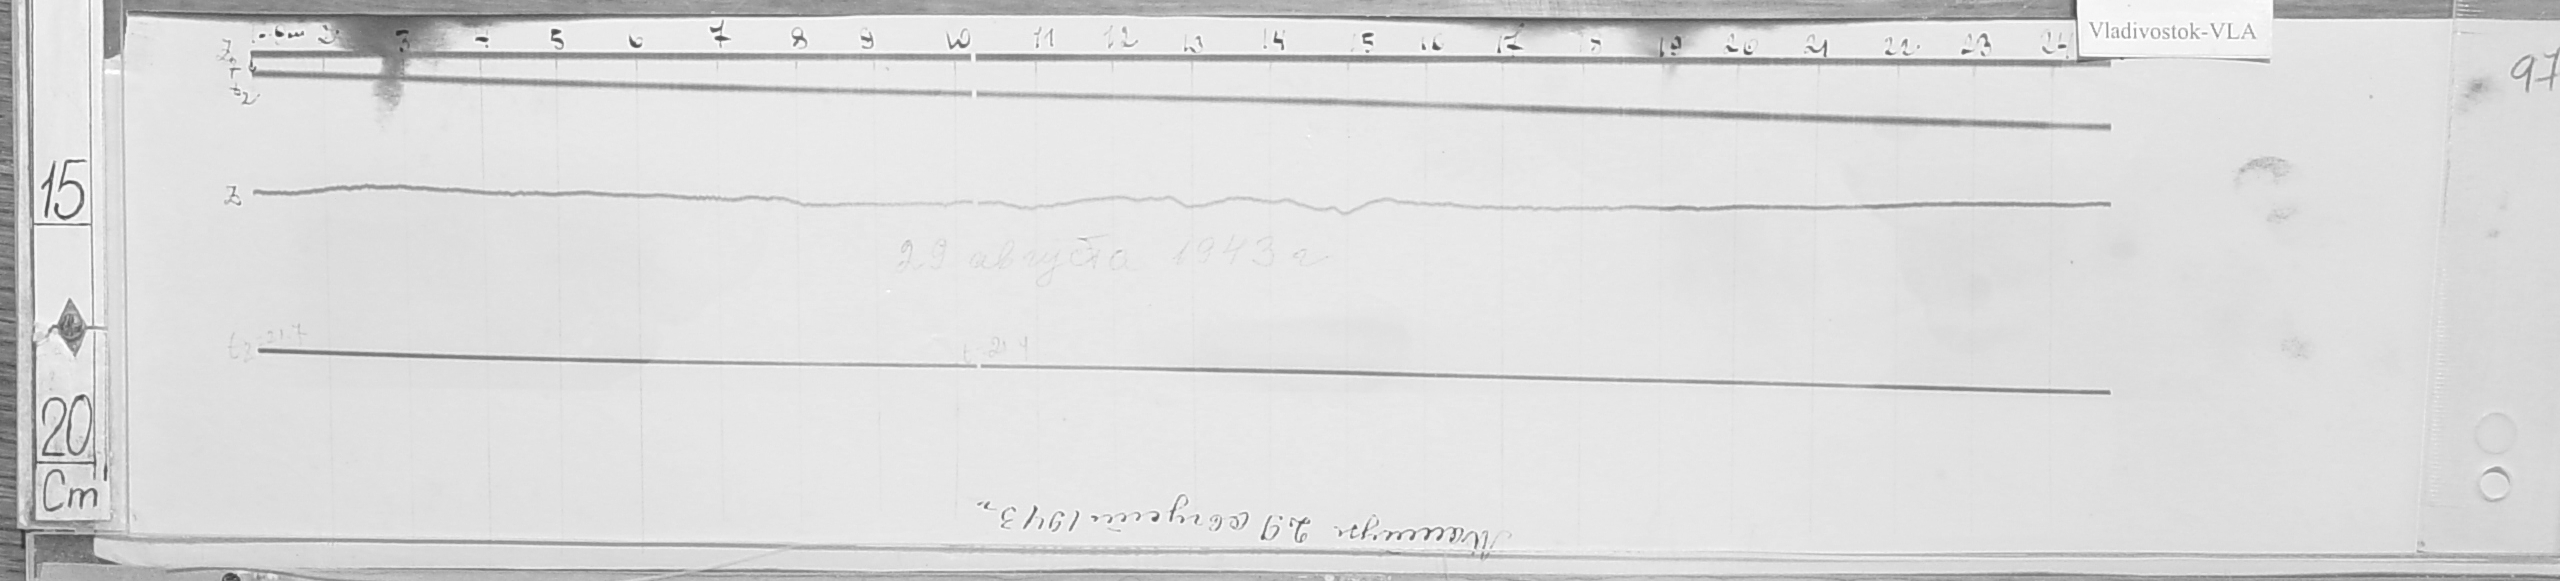 Vladivostok-VLA
97
2 3 4 5 6 7 8 9 10 11 12 13 14 15 16 17 18 19 20 21 22 23 24
t₂
15
Z
29 августа 1943 г
t₂=21.7
t=21.4
20
Cm
29 августа 1943 г